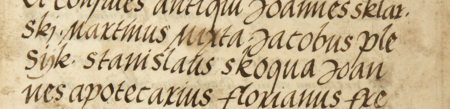 Consules antiqui Joannes sklar.
ski. Martinus Mixta. Jacobus ple
Syk. stanislaus skoqua Joan
nes apotecarius florianus fxe